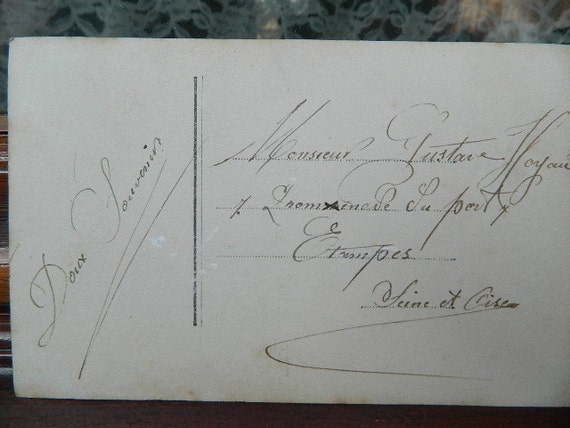 Doux Souvenir
Monsieur Gustave
7 Promenade du port
Etampes
Seine et Oise